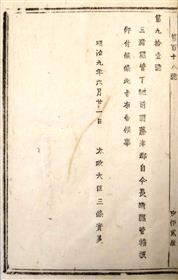 第百十八號
第九拾壹號
三潴縣管下肥前國藤津郡自今長崎縣管轄被
仰付候條此旨布告候事
明治九年六月廿一日　太政大臣三條實美